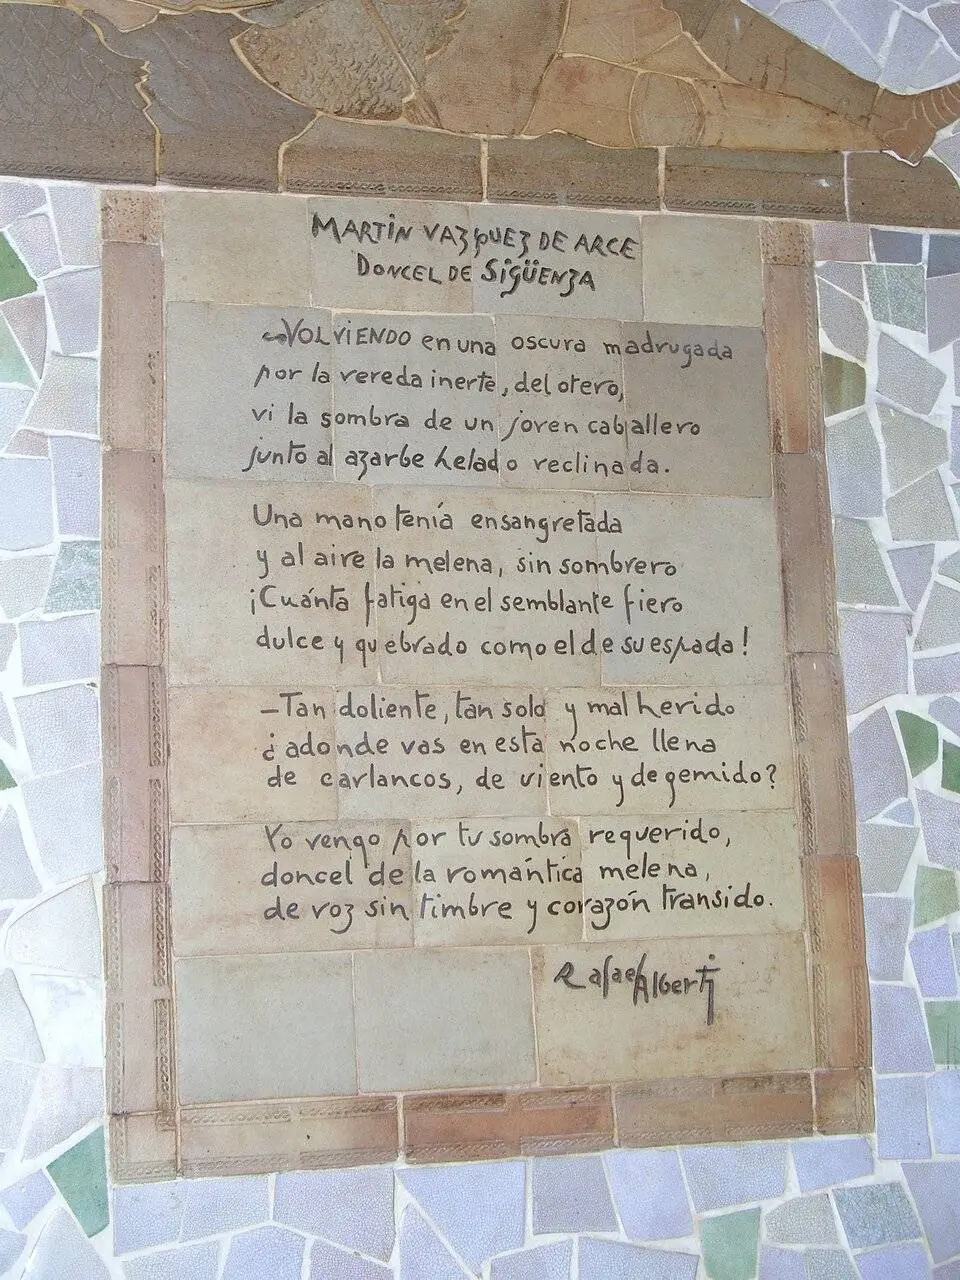 MARTIN VAZQUEZ DE ARCE
DONCEL DE SIGÜENZA
VOLVIENDO en una oscura madrugada
por la vereda inerte, del otero,
vi la sombra de un joven caballero
junto al azarbe helado reclinada.
Una mano tenía ensangretada
y al aire la melena, sin sombrero
¡Cuánta fatiga en el semblante fiero
dulce y quebrado como el de su espada!
–Tan doliente, tan solo y mal herido
¿adonde vas en esta noche llena
de carlancos, de viento y de gemido?
Yo vengo por tu sombra requerido,
doncel de la romántica melena,
de voz sin timbre y corazón transido.
Rafael Alberti